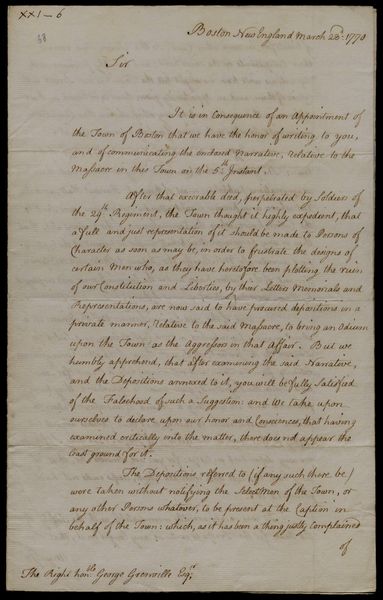 XXI-6
58
Boston New England March 23d. 1770
Sir
It is in Consequence of an Appointment of
the Town of Boston that we have the honor of writing to you,
and of communicating the enclosed Narrative, relative to the
Massacre in this Town on the 5th. Instant.
After that execrable deed, perpetrated by Soldiers of
the 29th. Regiment, the Town thought it highly expedient, that
a full and just representation of it should be made to Persons of
Character as soon as may be, in order to frustrate the designs of
certain Men who, as they have heretofore been plotting the ruin
of our Constitution and Liberties, by their Letters Memorials and
Representations, are now said to have procured depositions in a
private manner, relative to the said Massacre, to bring an Odium
upon the Town as the Aggressors in that Affair. But we
humbly apprehend, that after examining the said Narrative,
and the Depositions annexed to it, you will be fully Satisfied
of the Falsehood of such a Suggestion: and We take upon
ourselves to declare upon our honor and Consciences, that having
examined critically into the matter, there does not appear the
least ground for it.
The Depositions referred to (if any such there be)
were taken without notifying the Selectmen of the Town, or
any other Persons whatever, to be present at the Caption in
behalf of the Town: which, as it has been a thing justly complained
of
The Right honble. George Grenville Esqr.